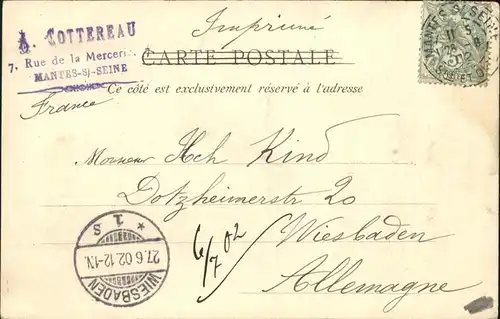 Imprimé
A. COTTEREAU
7, Rue de la Mercerie
MANTES-S/-SEINE
France
CARTE POSTALE
Ce côté est exclusivement réservé à l'adresse
MANTES S SEINE
Monsieur Hch Kind
Dotzheimerstr 20
Wiesbaden
Allemagne
6/7 02
* 1 S
27.6.02.12-1N.
WIESBADEN